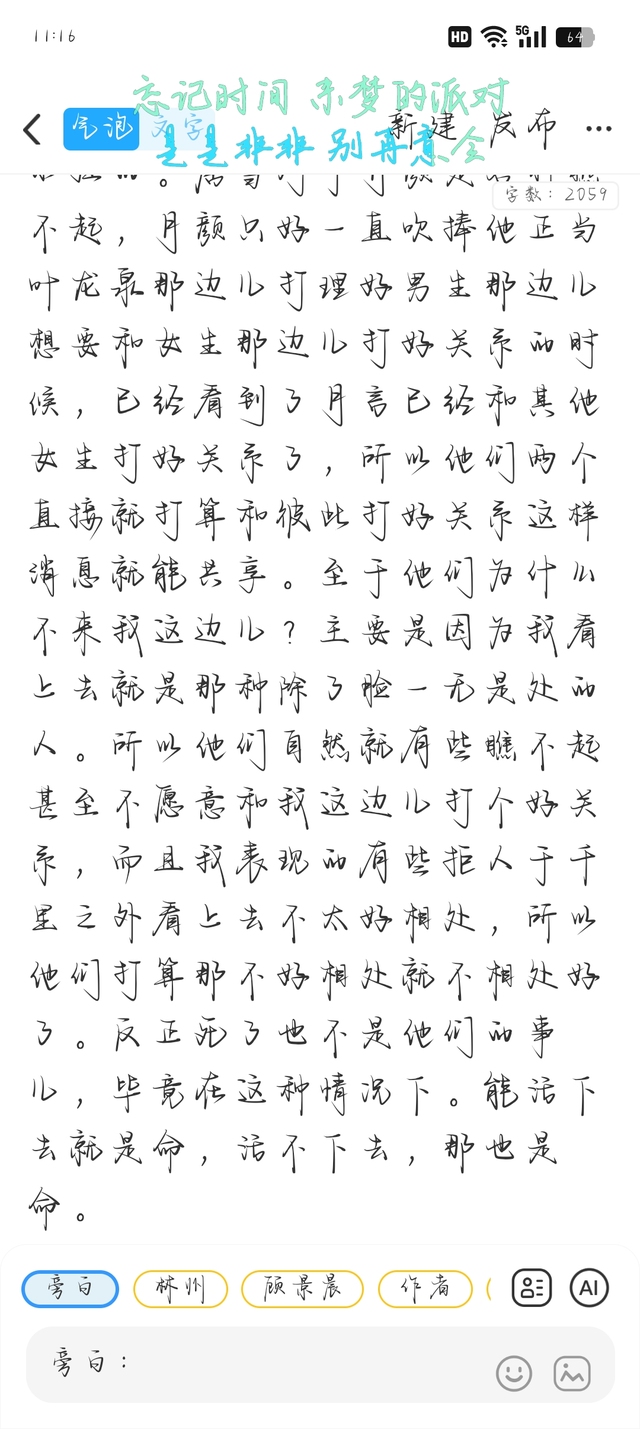 11:16
HD 5G 64
忘记时间 来梦的派对
是是非非 别再意会
气泡 文字 新建 发布
字数：2059
不起，月颜只好一直吹捧他正当
叶龙泉那边儿打理好男生那边儿
想要和女生那边儿打好关系的时
候，已经看到了月言已经和其他
女生打好关系了，所以他们两个
直接就打算和彼此打好关系这样
消息就能共享。至于他们为什么
不来我这边儿？主要是因为我看
上去就是那种除了脸一无是处的
人。所以他们自然就有些瞧不起
甚至不愿意和我这边儿打个好关
系，而且我表现的有些拒人于千
里之外看上去不太好相处，所以
他们打算那不好相处就不相处好
了。反正死了也不是他们的事
儿，毕竟在这种情况下。能活下
去就是命，活不下去，那也是
命。
旁白 林州 顾景晨 作者 AI
旁白：